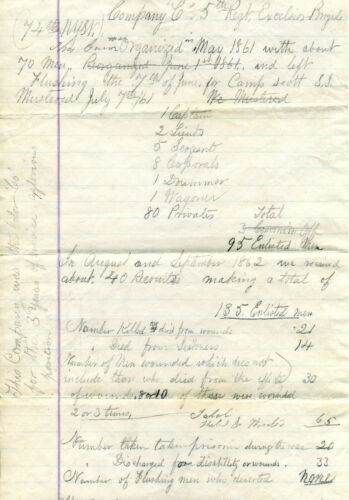 (74th NYSV.) Company "C" 5th Regt, Excelsior Brigade
This Comp was Organized in May 1861 with about
70 Men, Organized June 1st 1861, and left
Flushing the 7th of June, for Camp Scott S.I.
Mustered July 7th/61 We Mustered
1 Captain
2 Lieuts
5 Sergeant
8 Corporals
1 Drummer
1 Wagoner
80 Privates Total
3 Commission Off
95 Enlisted Men
In August and September 1862 we received
about 40 Recruits making a total of
135 Enlisted men
Number Killed & died from wounds 21
" Died from Sickness 14
Number of Men wounded which does not
include those who died from the effects 30
of wounds. 8 or 10 of these were wounded
2 or 3 times, Total
65
Number taken taken prisoner during the war 20
" Discharged for disability or wounds. 33
Number of Flushing men who deserted None
This Company was the
for the 3 years of